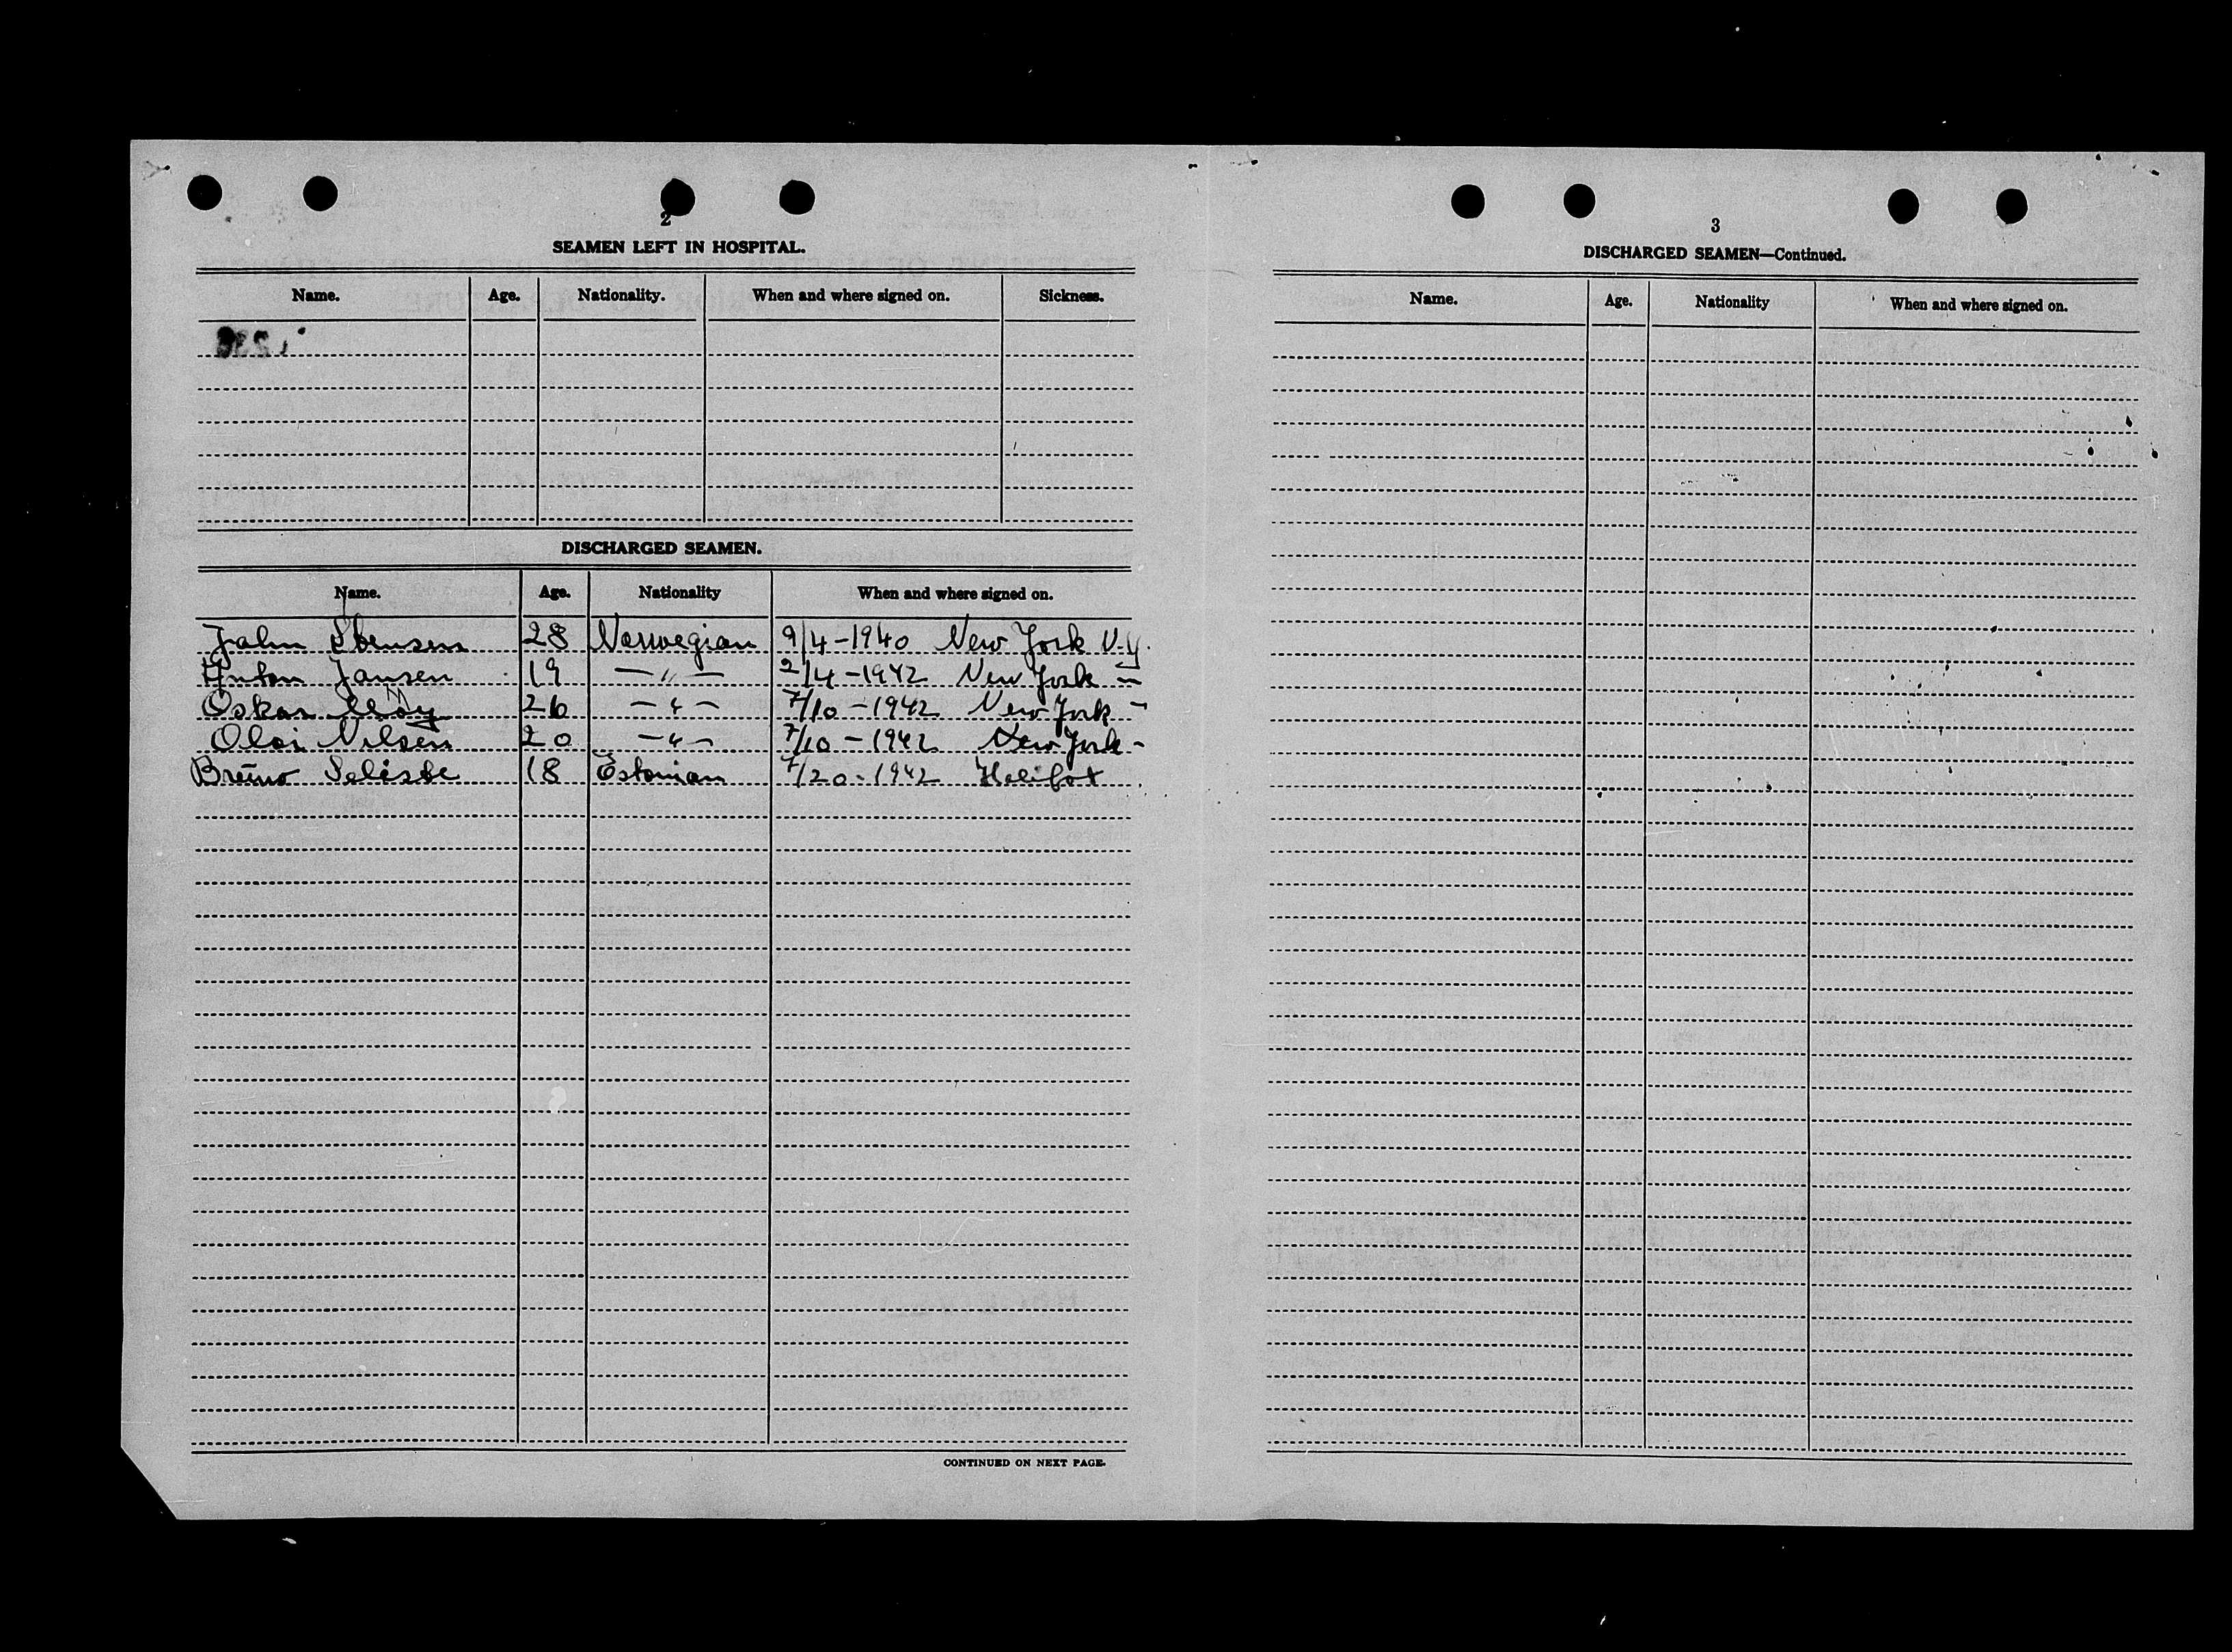 2
SEAMEN LEFT IN HOSPITAL.
Name. Age. Nationality. When and where signed on. Sickness.
DISCHARGED SEAMEN.
Name. Age. Nationality When and where signed on.
John Stensen 28 Norwegian 9/4-1940 New York N.Y.
Anton Jansen 19 —〃— 2/4-1942 New York —〃
Oskar Moy 26 —〃— 7/10-1942 New York -
Olai Nilsen 20 —〃— 7/10-1942 New York -
Bruno Seliste 18 Estonian 7/20-1942 Helifax
CONTINUED ON NEXT PAGE.
3
DISCHARGED SEAMEN—Continued.
Name. Age. Nationality When and where signed on.